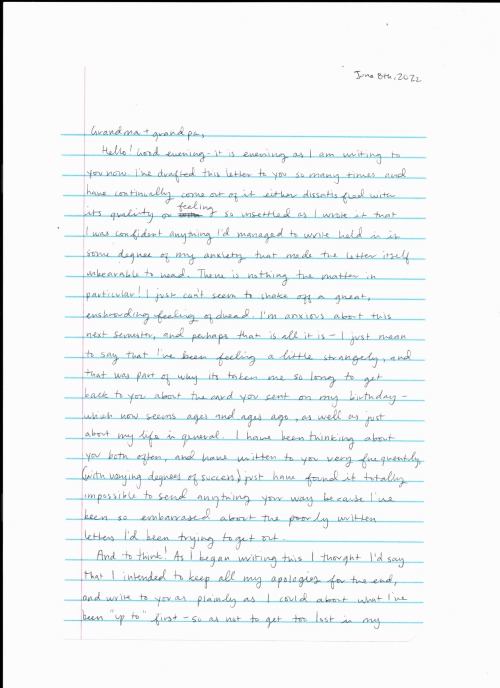 June 8th, 2022
Grandma + grandpa,
Hello! Good evening - it is evening as I am writing to
you now. I've drafted this letter to you so many times and
have continually come out of it either dissatisfied with
its quality or feeling so unsettled as I wrote it that
I was confident anything I'd managed to write held in it
some degree of my anxiety that made the letter itself
unbearable to read. There is nothing the matter in
particular! I just can't seem to shake off a great,
enshrouding feeling of dread. I'm anxious about this
next semester, and perhaps that is all it is - I just mean
to say that I've been feeling a little strangely, and
that was part of why its taken me so long to get
back to you about the card you sent on my birthday -
which now seems ages and ages ago, as well as just
about my life in general. I have been thinking about
you both often, and have written to you very frequently
(with varying degrees of success) just have found it totally
impossible to send anything your way because I've
been so embarrased about the poorly written
letters I'd been trying to get out.
And to think! As I began writing this I thought I'd say
that I intended to keep all my apologies for the end,
and write to you as plainly as I could about what I've
been "up to" first - so as not to get too lost in my